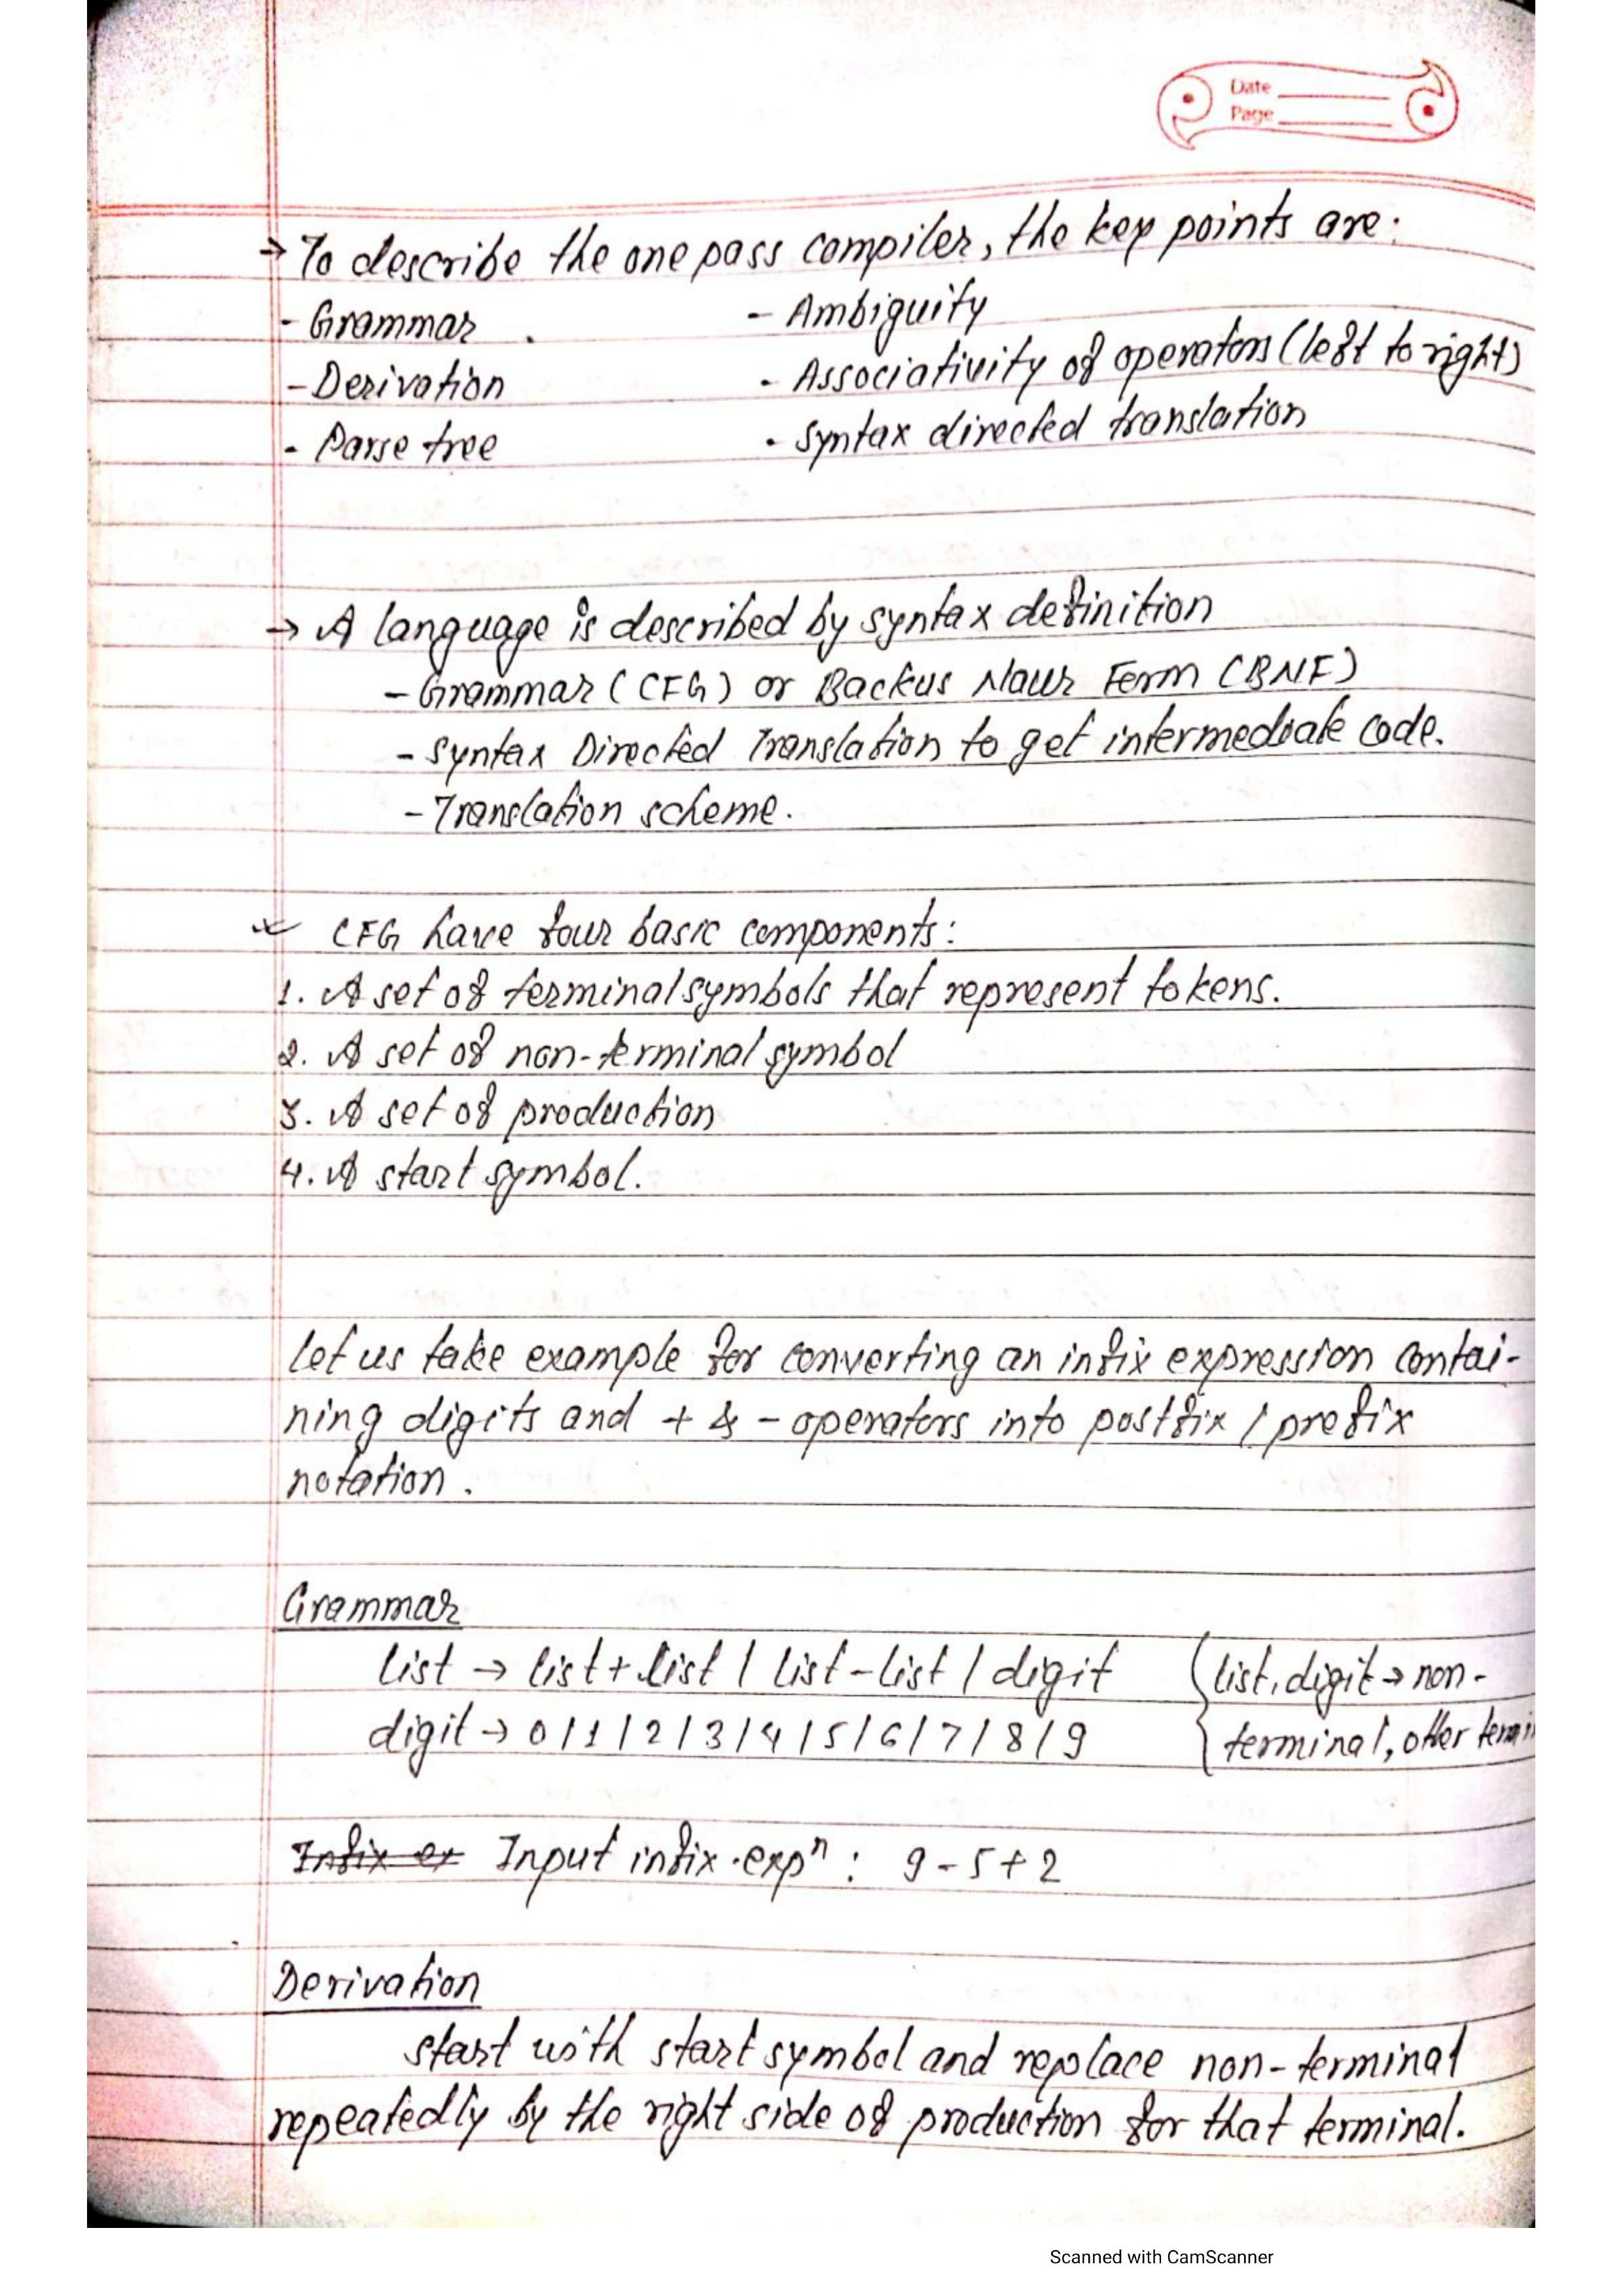 Date
Page
→ To describe the one pass compiler, the key points are:
- Grammar - Ambiguity
- Derivation - Associativity of operators (left to right)
- Parse tree - Syntax directed translation
→ A language is described by syntax definition
- Grammar (CFG) or Backus Naur Form (BNF)
- Syntax Directed Translation to get intermediate code.
- Translation scheme.
CFG have four basic components:
1. A set of terminal symbols that represent tokens.
2. A set of non-terminal symbol
3. A set of production
4. A start symbol.
let us take example for converting an infix expression contai-
ning digits and + & - operators into postfix / prefix
notation.
Grammar
list → list + list | list - list | digit { list, digit → non-
digit → 0 | 1 | 2 | 3 | 4 | 5 | 6 | 7 | 8 | 9 terminal, other termin
Infix ex Input infix expⁿ : 9 - 5 + 2
Derivation
start with start symbol and replace non-terminal
repeatedly by the right side of production for that terminal.
Scanned with CamScanner